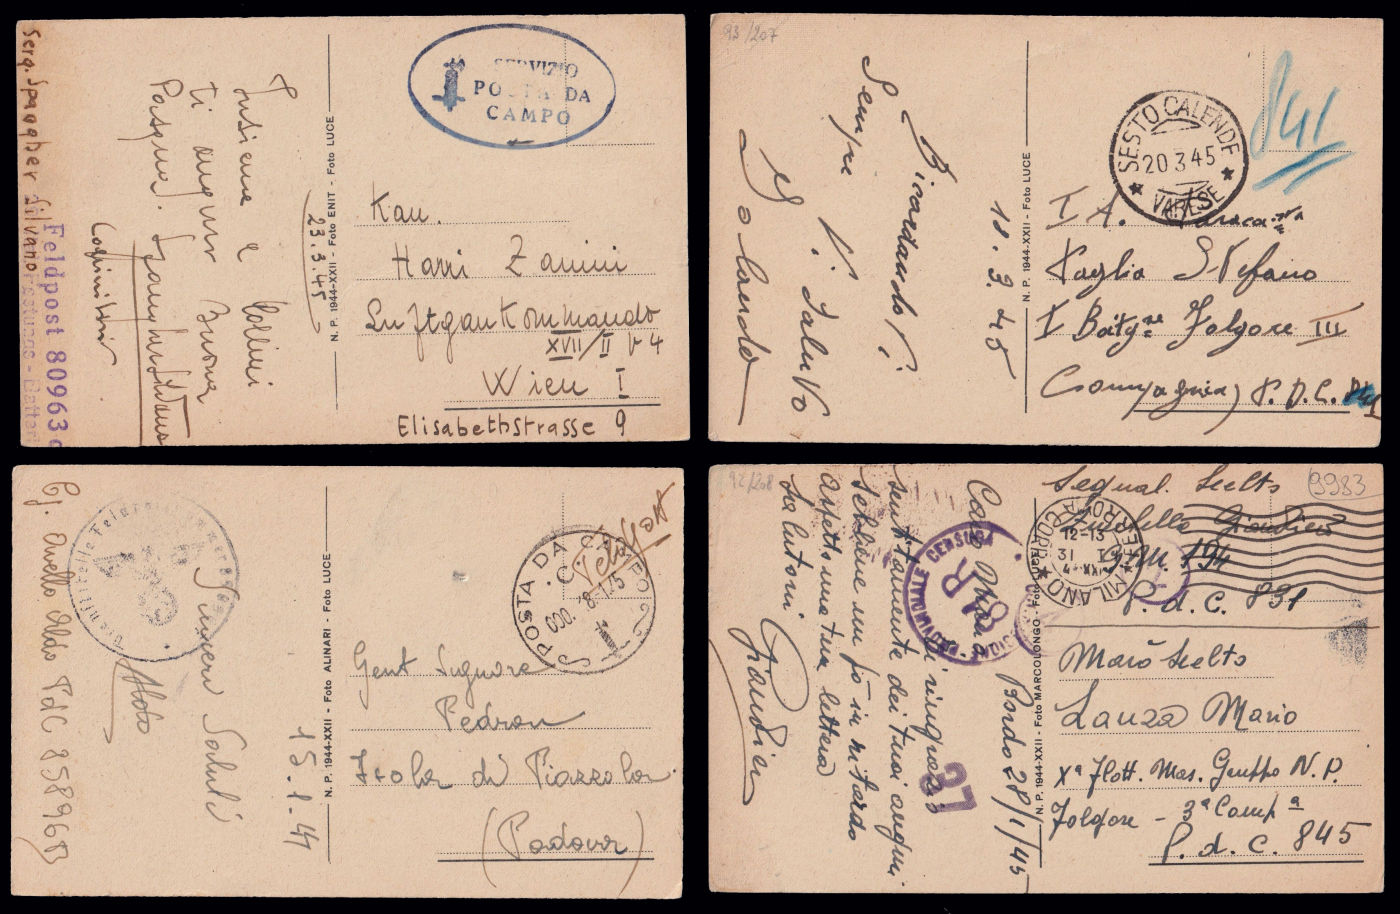 Serg. Spaggher Silvano
Feldpost 80963
Insieme e
ti auguro Buona
Pasqua.
N. P. 1944-XXII - Foto ENIT - Foto LUCE
23.3.45
SERVIZIO
POSTA DA
CAMPO
Kan.
Harri Zanini
Luftgaukommando
XVII/II
Wien I
Elisabethstrasse 9
93/207
Ricordandoti
Sempre
Ti Saluto
Rolando
18.3.45
N. P. 1944-XXII - Foto LUCE
SESTO CALENDE
20 3 45
VARESE
841
I A.
Paglia Stefano
I Batgne Folgore III
Compagnia) P. D. C. 841
Aldo PdC 858963
Sinceri Saluti
Aldo
15.1.45
N. P. 1944-XXII - Foto ALINARI - Foto LUCE
POSTA DA CAMPO
Gent Signore
Pedron
Isola di Piazzola
(Padova)
92/208
9983
Segnal. Scelto
G.M. 194
P. d. C. 831
Caro Mario
Ti ringrazio
sentitamente dei tuoi auguri
sebbene un pò in ritardo
aspetto una tua lettera
Salutoni
Bordo 28/1/45
N. P. 1944-XXII - Foto MARCOLONGO - Foto LUCE
COMMISSIONE PROVINCIALE CENSURA
37
MILANO
FERROVIA
12-13
31 I
Marò Scelto
Lanza Mario
Xª Flott. Mas. Gruppo N. P.
Folgore - 3ª Compª
P. d. C. 845